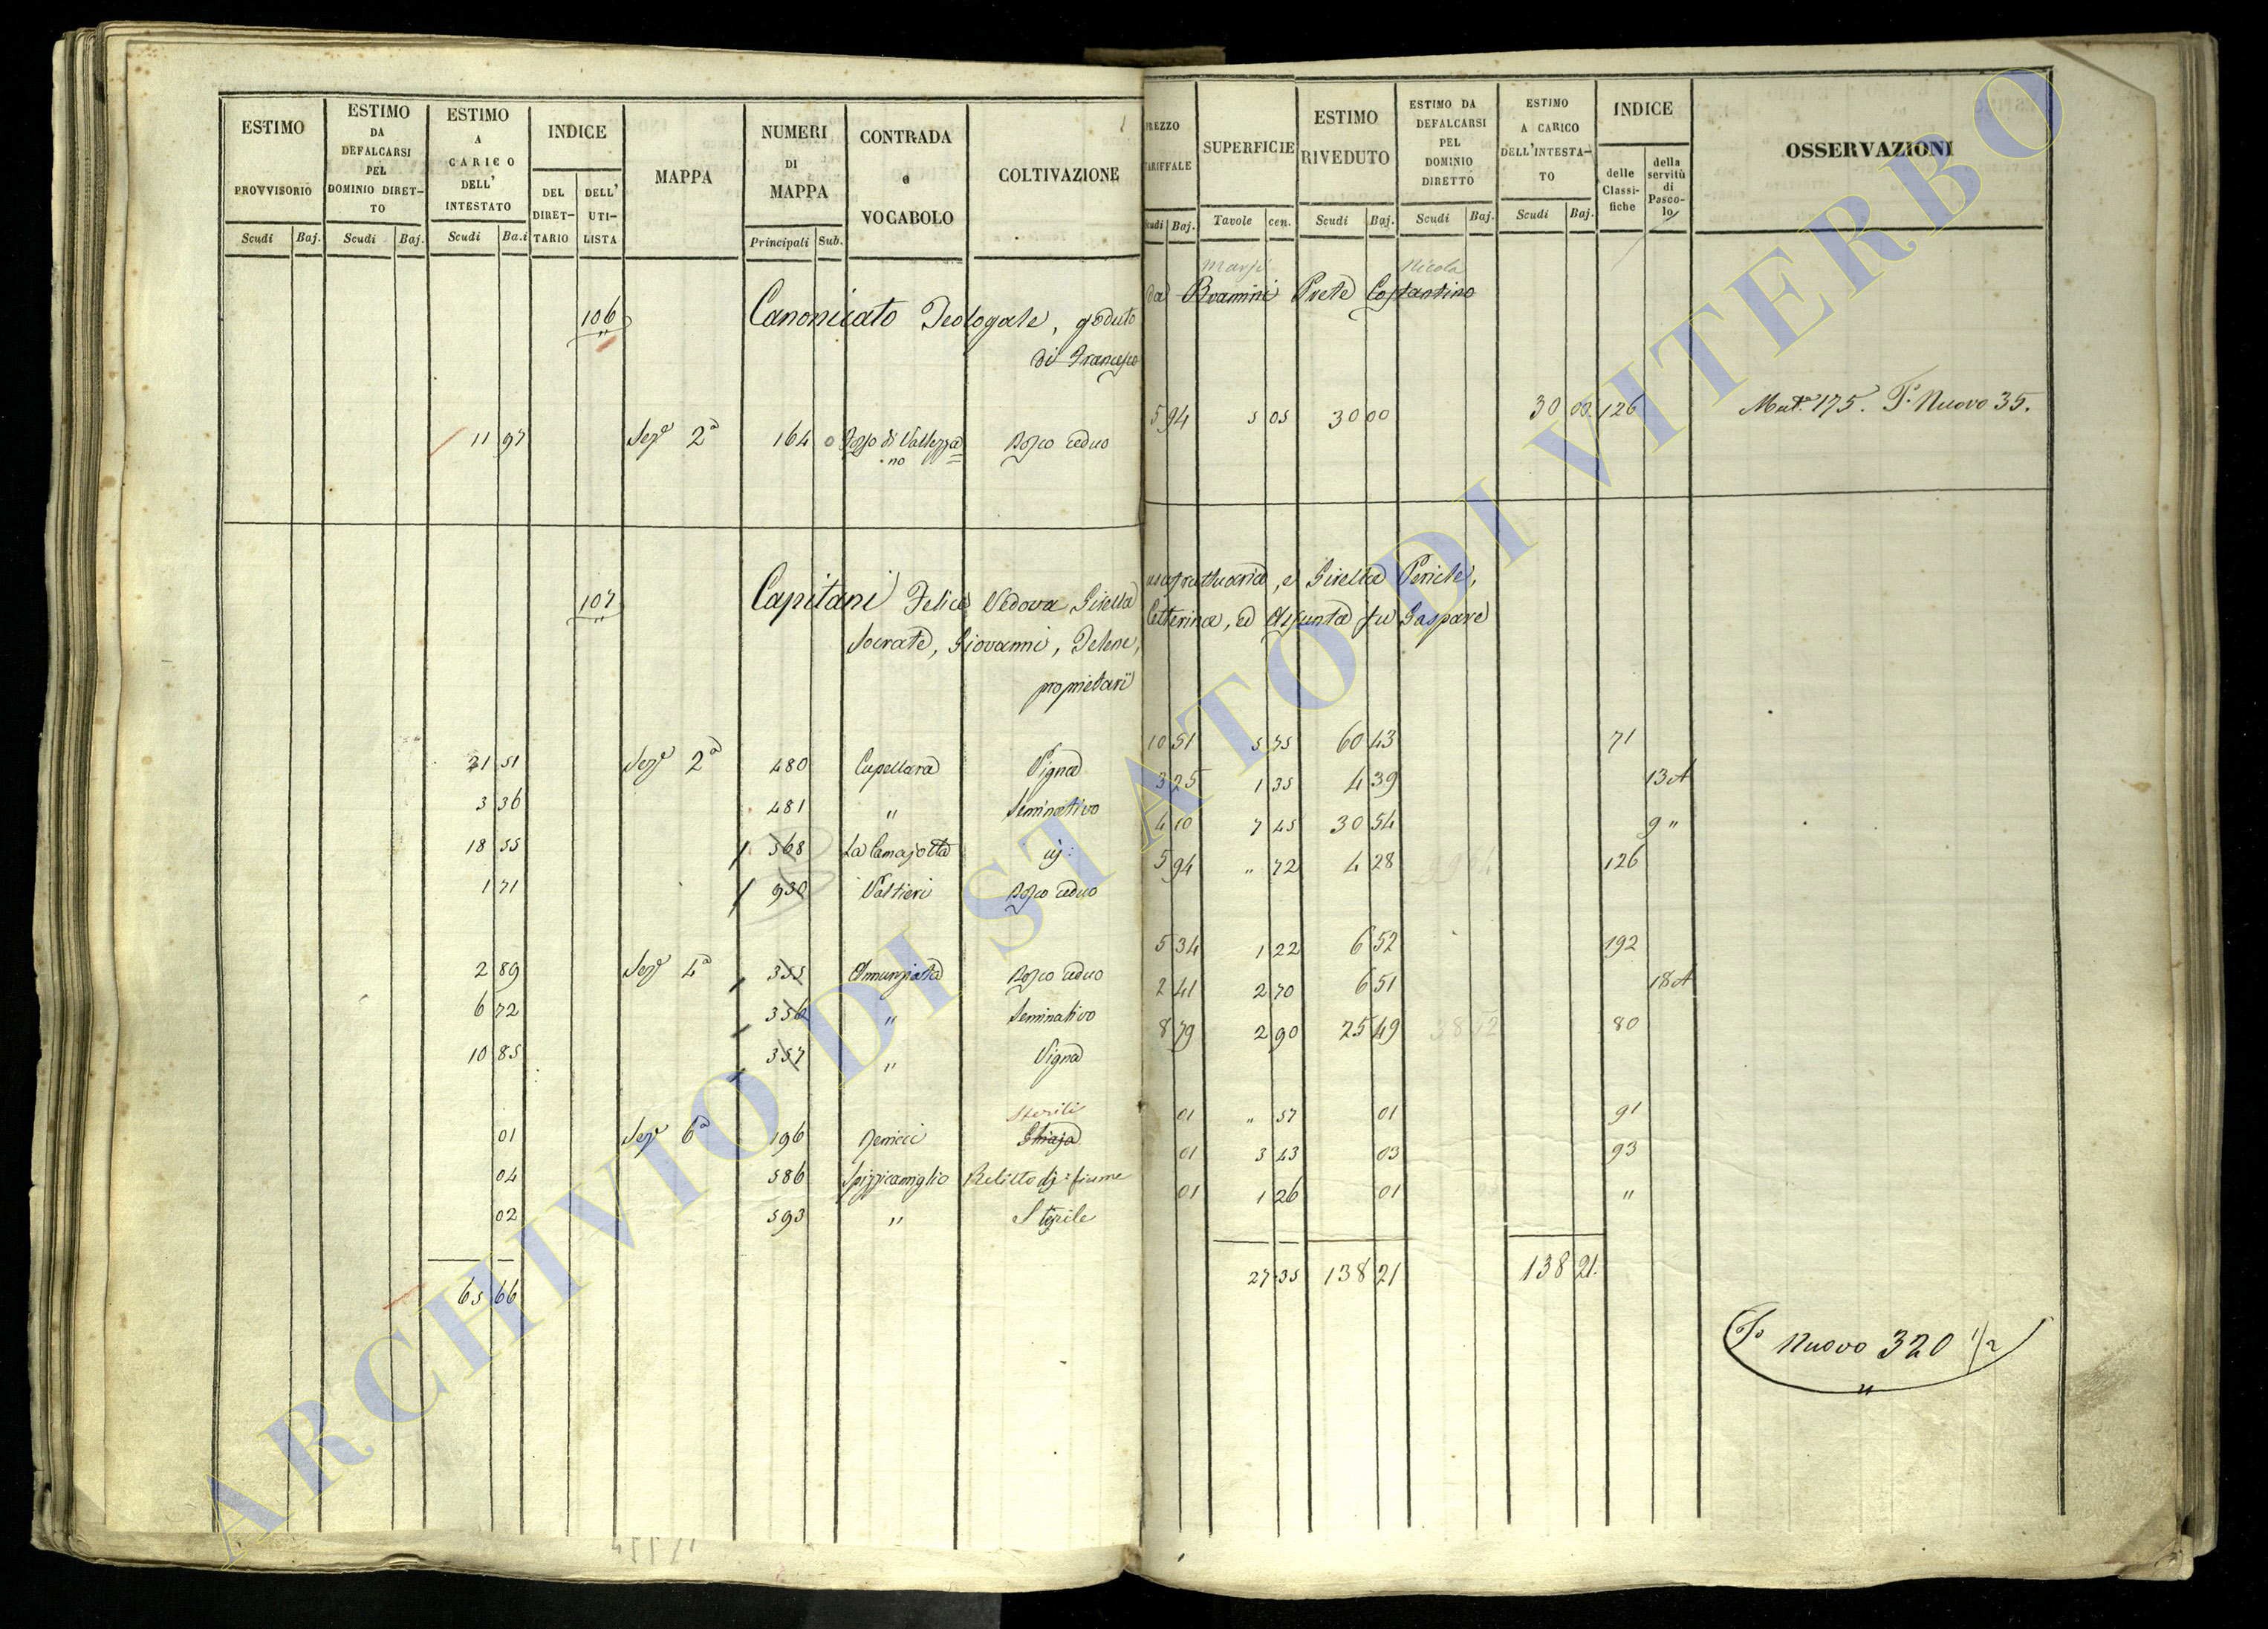 ESTIMO PROVVISORIO
ESTIMO DA DEFALCARSI PEL DOMINIO DIRETTO
ESTIMO A CARICO DELL' INTESTATO
INDICE
DEL DIRETTARIO
DELL' UTILISTA
MAPPA
NUMERI DI MAPPA
CONTRADA e VOCABOLO
COLTIVAZIONE
Scudi Baj. Scudi Baj. Scudi Ba.i Principali Sub.
PREZZO TARIFFALE
SUPERFICIE
ESTIMO RIVEDUTO
ESTIMO DA DEFALCARSI PEL DOMINIO DIRETTO
ESTIMO A CARICO DELL'INTESTATO
INDICE
delle Classifiche
della servitù di Pascolo
OSSERVAZIONI
Scudi Baj. Tavole cen. Scudi Baj. Scudi Baj. Scudi Baj.
Nicola
106 Canonicato Teologale, goduto da Bramini Prete Costantino
di Francesco
11 97 Sezе 2a 164 Bosco ceduo 5 94 5 05 30 00 30 00 126 Mut. 175. P. Nuovo 35.
107 Capitani Felice Vedova Girella usufruttuaria, e Girella Pericle,
Socrate, Giovanni, Catterina, ed Assunta fu Gaspare
proprietarii
31 51 2a 480 Cupellara Vigna 10 51 5 75 60 43 71
3 36 481 " Seminativo 3 25 1 35 4 39 13 A
18 55 568 La Camajotta 4 10 7 45 30 54 9 "
1 71 930 Valtieri Bosco ceduo 5 94 " 72 4 28 126
2 89 4a 355 Annunziata Bosco ceduo 5 34 1 22 6 52 192
6 72 356 " Seminativo 2 41 2 70 6 51 18 A
10 85 357 " Vigna 8 79 2 90 25 49 80
Sterili
01 6a 196 Ghiaja 01 " 57 01 91
04 586 Spizzicamiglio Relitto di fiume 01 3 43 03 93
02 593 " Sterile 01 1 26 01 "
65 66 27 35 138 21 138 21.
P. Nuovo 320 1/2
ARCHIVIO DI STATO DI VITERBO